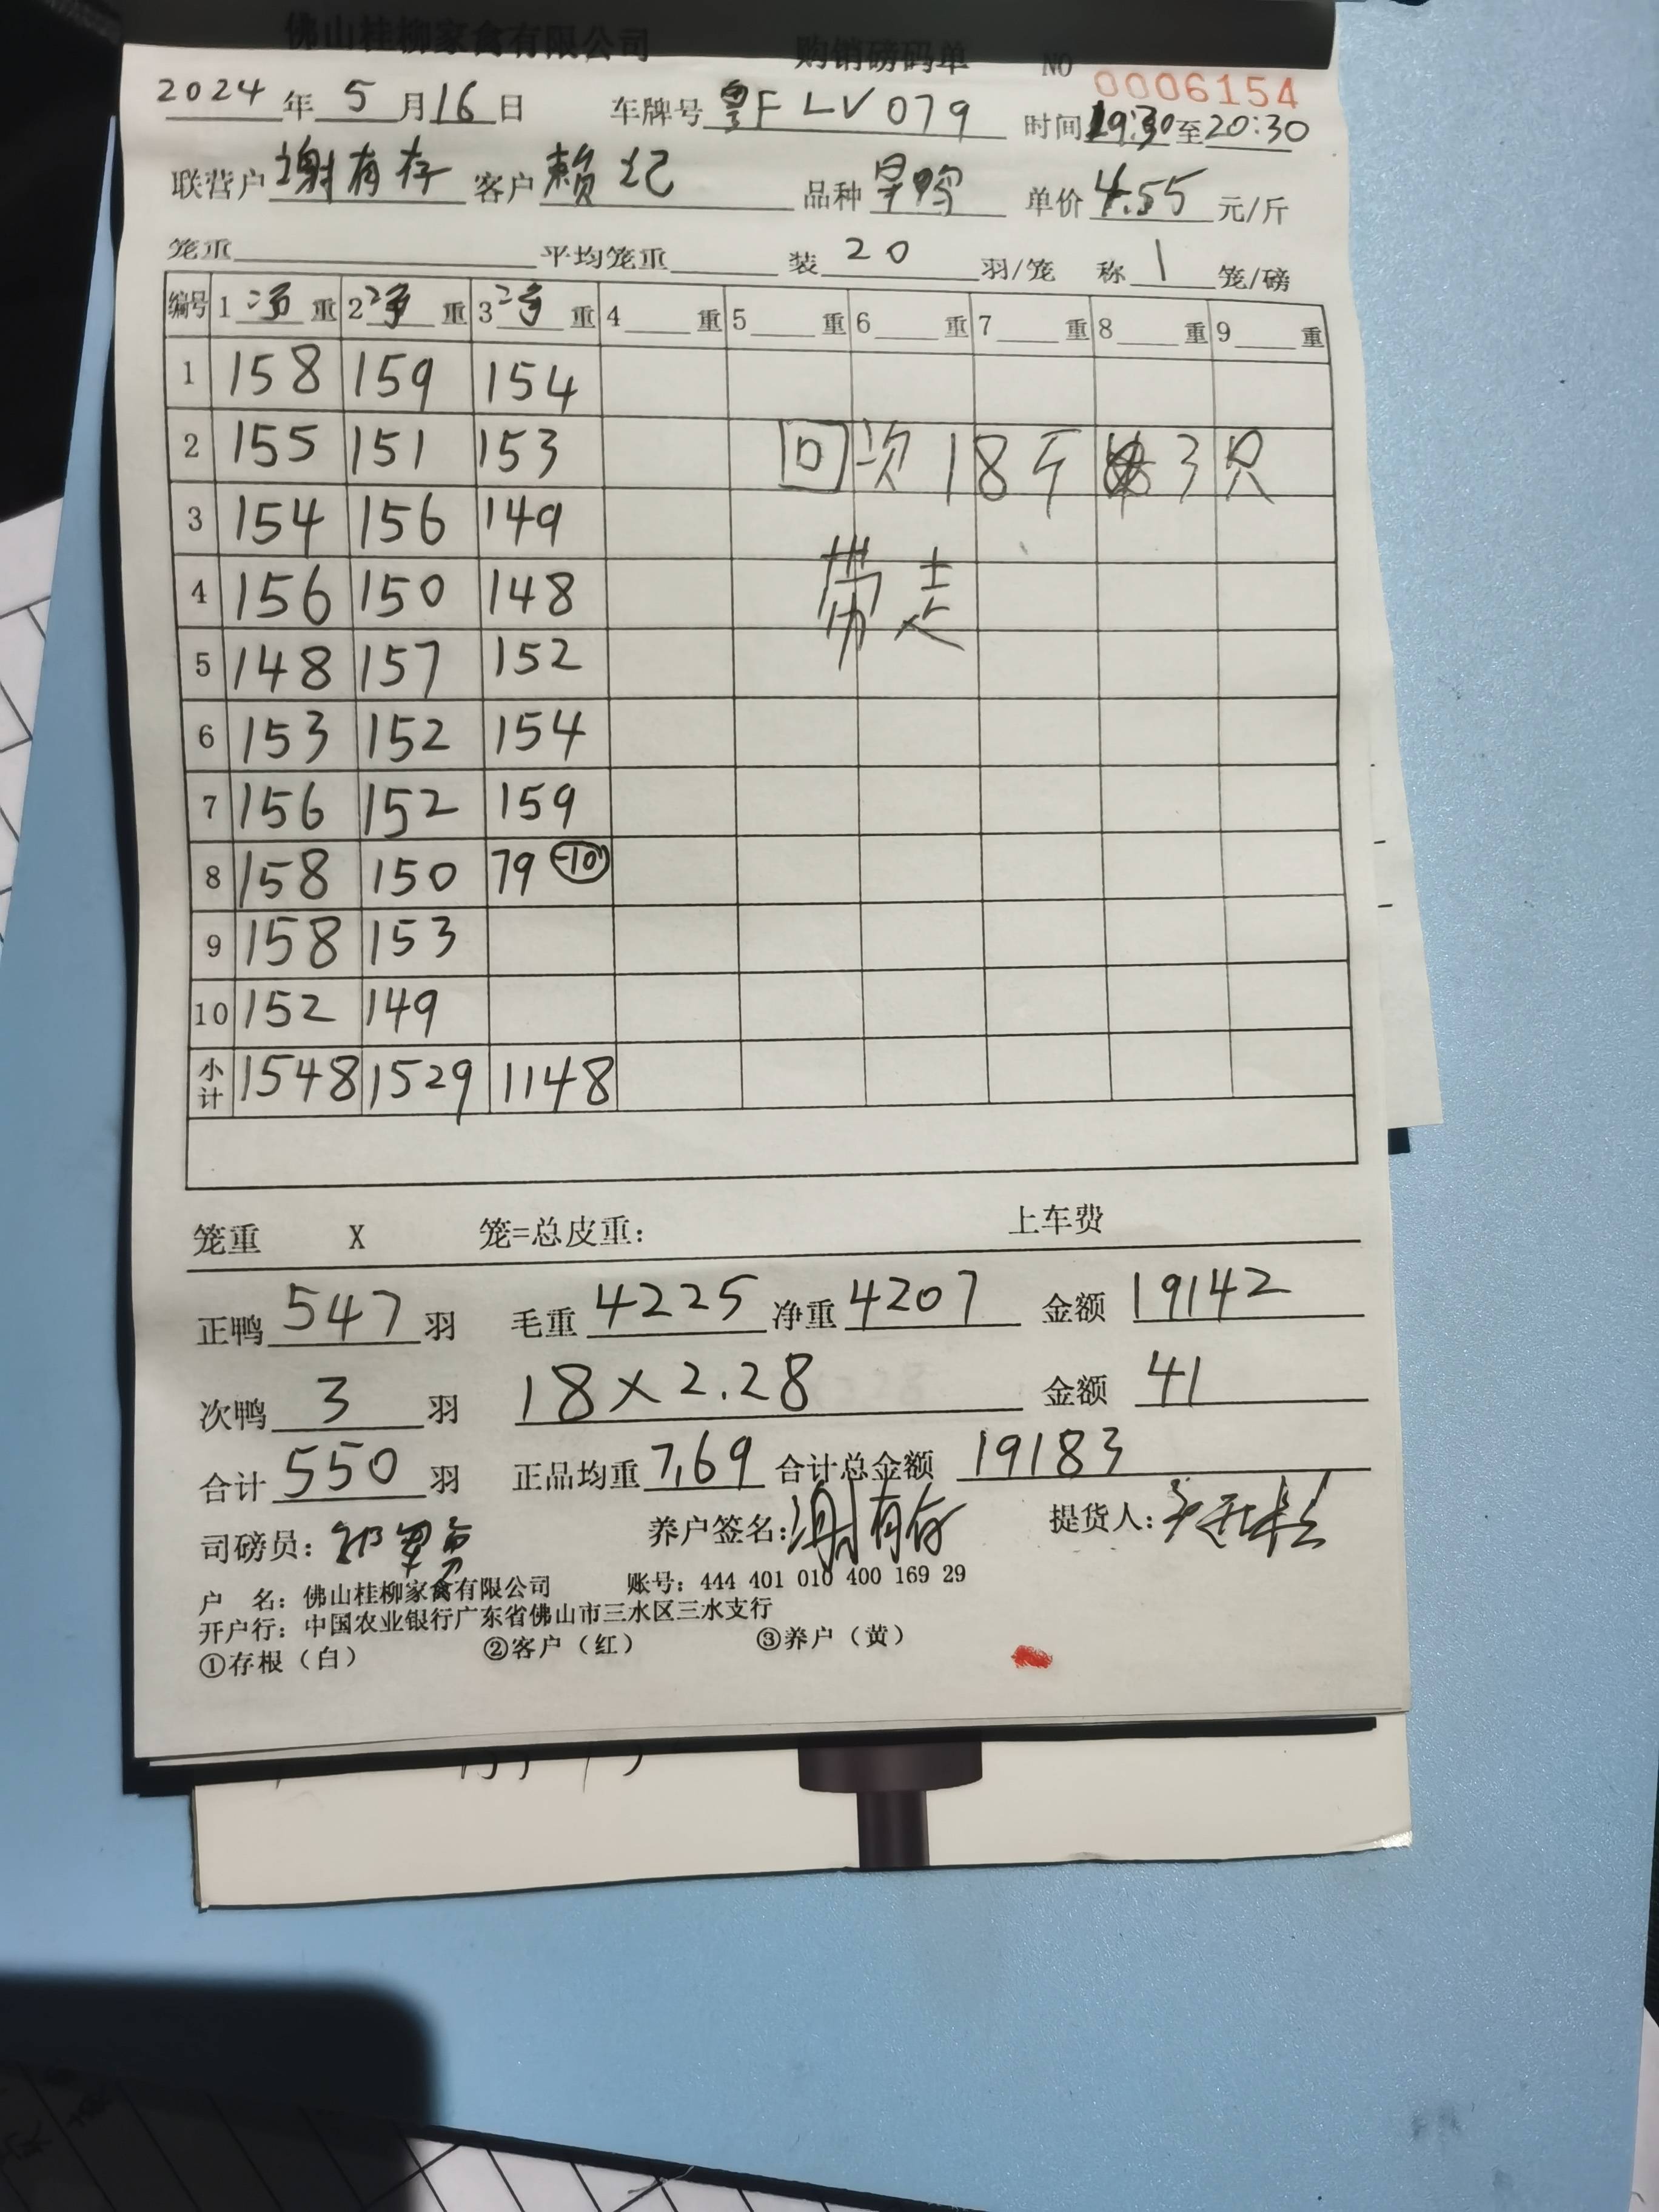 佛山桂柳家禽有限公司 购销磅码单 NO 0006154
2024 年 5 月 16 日 车牌号 粤F LV079 时间 19:30 至 20:30
联营户 谢有存 客户 赖记 品种 单价 4.55 元/斤
笼重 平均笼重 装 20 羽/笼 称 1 笼/磅
编号 1 净 重 2 净 重 3 净 重 4 重 5 重 6 重 7 重 8 重 9 重
1 158 159 154
2 155 151 153 回次18斤 3只
3 154 156 149
4 156 150 148 带走
5 148 157 152
6 153 152 154
7 156 152 159
8 158 150 79 -10
9 158 153
10 152 149
小计 1548 1529 1148
笼重 X 笼=总皮重: 上车费
正鸭 547 羽 毛重 4225 净重 4207 金额 19142
次鸭 3 羽 18×2.28 金额 41
合计 550 羽 正品均重 7.69 合计总金额 19183
司磅员: 养户签名: 谢有存 提货人:
户 名: 佛山桂柳家禽有限公司 账号: 444 401 010 400 169 29
开户行: 中国农业银行广东省佛山市三水区三水支行
①存根（白） ②客户（红） ③养户（黄）